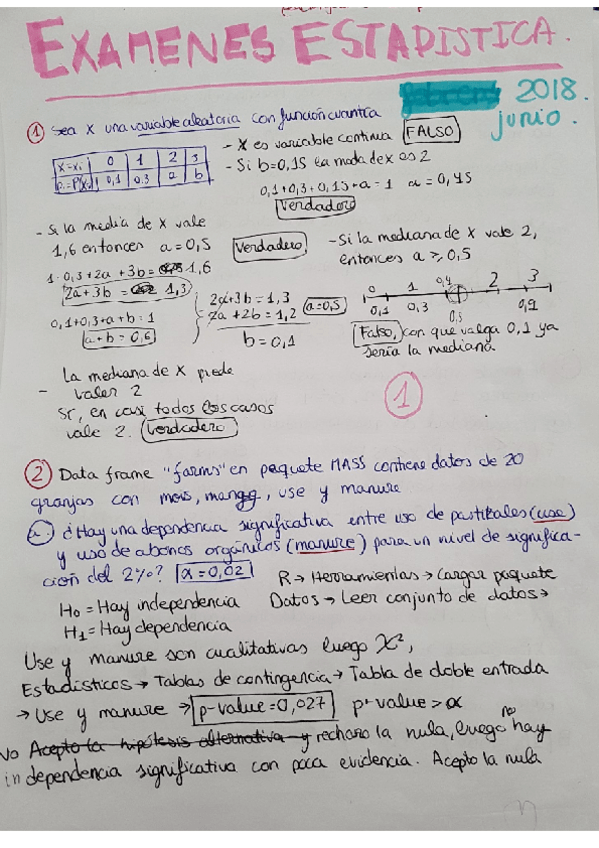 EXAMENES ESTADISTICA.
2018.
junio.
① Sea X una variable aleatoria con función cuantía
X=xi 0 1 2 3
Pi=P(xi) 0,1 0,3 a b
- X es variable continua FALSO
- Si b=0,15 la moda de x es 2
0,1+0,3+0,15+a=1 a=0,45
Verdadero
- Si la media de X vale
1,6 entonces a=0,5 Verdadero
1·0,3+2a+3b=1,6
2a+3b=1,3
0,1+0,3+a+b=1
a+b=0,6
2a+3b=1,3
2a+2b=1,2
b=0,1
a=0,5
- Si la mediana de X vale 2,
entonces a ≥ 0,5
0 1 0,4 2 3
0,1 0,3 0,5 0,1
Falso, con que valga 0,1 ya
sería la mediana
- La mediana de X puede
valer 2
Sí, en casi todos los casos
vale 2. Verdadero
①
② Data frame "farms" en paquete MASS contiene datos de 20
granjas con mois, manag, use y manure
a) ¿Hay una dependencia significativa entre uso de pastizales (use)
y uso de abonos orgánicos (manure) para un nivel de significa-
ción del 2%? α=0,02
R → Herramientas → Cargar paquete
Datos → Leer conjunto de datos →
H0 = Hay independencia
H1 = Hay dependencia
Use y manure son cualitativas luego X²,
Estadísticos → Tablas de contingencia → Tabla de doble entrada
→ Use y manure → p-value=0,027 p-value > α
no
No Acepto la hipótesis alternativa y rechazo la nula, luego hay
independencia significativa con poca evidencia. Acepto la nula